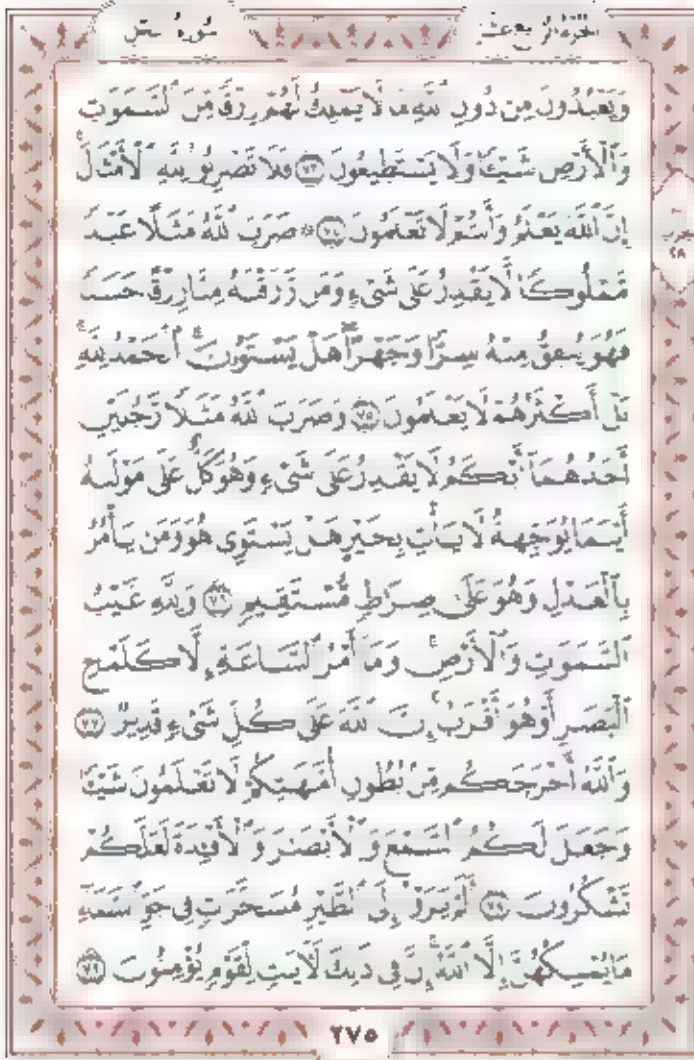 سورة النحل الجزء الرابع عشر
وَيَعْبُدُونَ مِن دُونِ ٱللَّهِ مَا لَا يَمْلِكُ لَهُمْ رِزْقًا مِّنَ ٱلسَّمَٰوَٰتِ
وَٱلْأَرْضِ شَيْـًٔا وَلَا يَسْتَطِيعُونَ ٧٣ فَلَا تَضْرِبُوا۟ لِلَّهِ ٱلْأَمْثَالَ ۚ
إِنَّ ٱللَّهَ يَعْلَمُ وَأَنتُمْ لَا تَعْلَمُونَ ٧٤ ۞ ضَرَبَ ٱللَّهُ مَثَلًا عَبْدًا
مَّمْلُوكًا لَّا يَقْدِرُ عَلَىٰ شَىْءٍ وَمَن رَّزَقْنَٰهُ مِنَّا رِزْقًا حَسَنًا
فَهُوَ يُنفِقُ مِنْهُ سِرًّا وَجَهْرًا ۖ هَلْ يَسْتَوُۥنَ ۚ ٱلْحَمْدُ لِلَّهِ ۚ
بَلْ أَكْثَرُهُمْ لَا يَعْلَمُونَ ٧٥ وَضَرَبَ ٱللَّهُ مَثَلًا رَّجُلَيْنِ
أَحَدُهُمَآ أَبْكَمُ لَا يَقْدِرُ عَلَىٰ شَىْءٍ وَهُوَ كَلٌّ عَلَىٰ مَوْلَىٰهُ
أَيْنَمَا يُوَجِّههُّ لَا يَأْتِ بِخَيْرٍ ۖ هَلْ يَسْتَوِى هُوَ وَمَن يَأْمُرُ
بِٱلْعَدْلِ ۙ وَهُوَ عَلَىٰ صِرَٰطٍ مُّسْتَقِيمٍ ٧٦ وَلِلَّهِ غَيْبُ
ٱلسَّمَٰوَٰتِ وَٱلْأَرْضِ ۚ وَمَآ أَمْرُ ٱلسَّاعَةِ إِلَّا كَلَمْحِ
ٱلْبَصَرِ أَوْ هُوَ أَقْرَبُ ۚ إِنَّ ٱللَّهَ عَلَىٰ كُلِّ شَىْءٍ قَدِيرٌ ٧٧
وَٱللَّهُ أَخْرَجَكُم مِّنۢ بُطُونِ أُمَّهَٰتِكُمْ لَا تَعْلَمُونَ شَيْـًٔا
وَجَعَلَ لَكُمُ ٱلسَّمْعَ وَٱلْأَبْصَٰرَ وَٱلْأَفْـِٔدَةَ ۙ لَعَلَّكُمْ
تَشْكُرُونَ ٧٨ أَلَمْ يَرَوْا۟ إِلَى ٱلطَّيْرِ مُسَخَّرَٰتٍ فِى جَوِّ ٱلسَّمَآءِ
مَا يُمْسِكُهُنَّ إِلَّا ٱللَّهُ ۗ إِنَّ فِى ذَٰلِكَ لَـَٔايَٰتٍ لِّقَوْمٍ يُؤْمِنُونَ ٧٩
الحزب
٢٨
٢٧٥